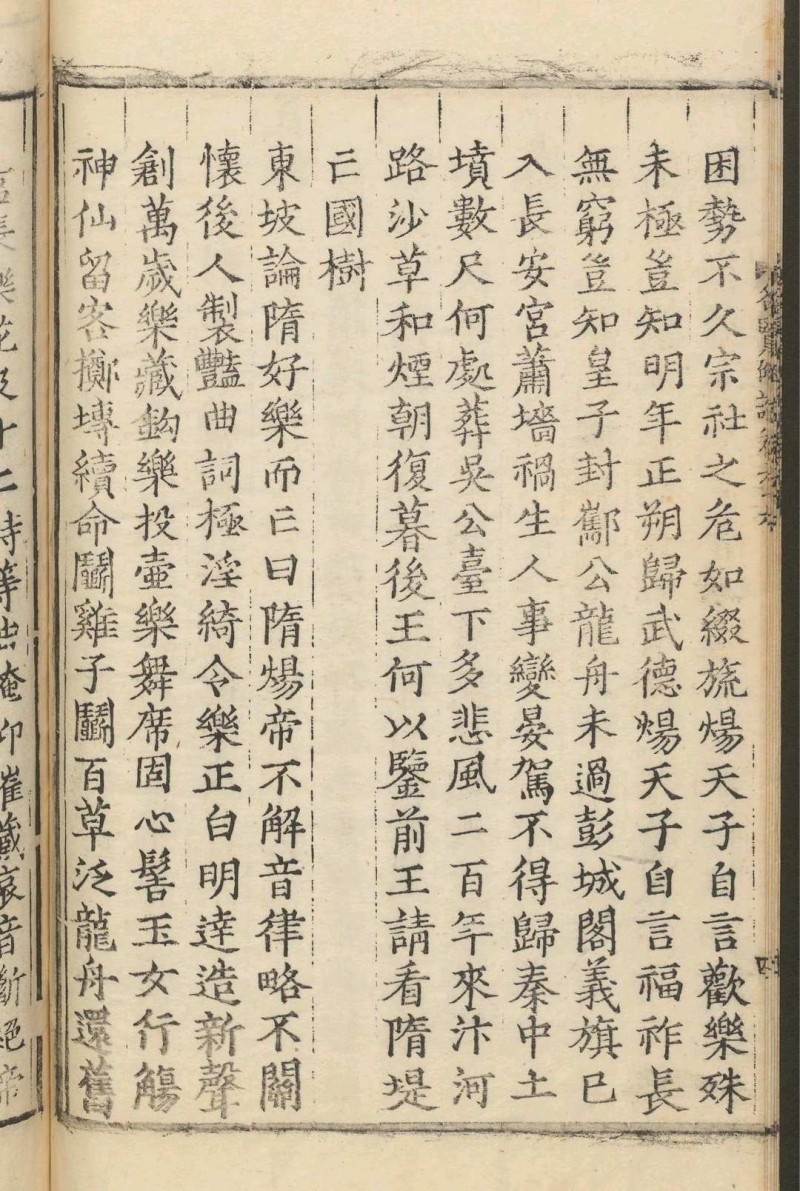 困勢不久宗社之危如綴旒煬天子自言歡樂殊
未極豈知明年正朔歸武德煬天子自言福祚長
無窮豈知皇子封酅公龍舟未過彭城閣義旗已
入長安宮蕭墻禍生人事變晏駕不得歸秦中土
墳數尺何處葬吳公臺下多悲風二百年來汴河
路沙草和煙朝復暮後王何以鑒前王請看隋堤
亡國樹
東坡論隋好樂而亡曰隋煬帝不解音律略不關
懷後人製豔曲詞極淫綺令樂正白明達造新聲
創萬歲樂藏鈎樂投壷樂舞席固心髻玉女行觴
神仙留客擲塼續命鬭雞子鬭百草泛龍舟還舊
宮長樂花及十二時等曲掩抑摧藏哀音斷絕帝